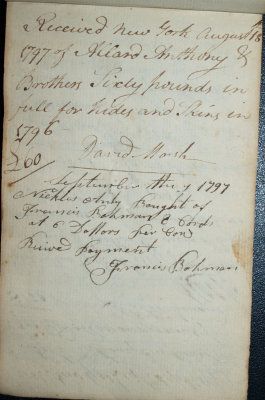 Received New York August 18
1797 of Nicard Anthony &
Brothers Sixty pounds in
full for Hides and Skins in
1796
£60 David Marsh
September the 9 1797
Nichles Anty Bought of
Francis Bohman 2 Cords
at 6 Dollors per Cord
Reived payment
Francis Bohman